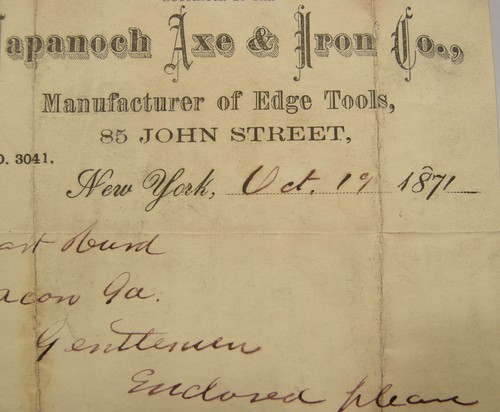 apanoch Axe & Iron Co.,
Manufacturer of Edge Tools,
85 JOHN STREET,
O. 3041.
New York, Oct. 19 1871
art Hurd
acon Ga.
Gentlemen
Enclosed please